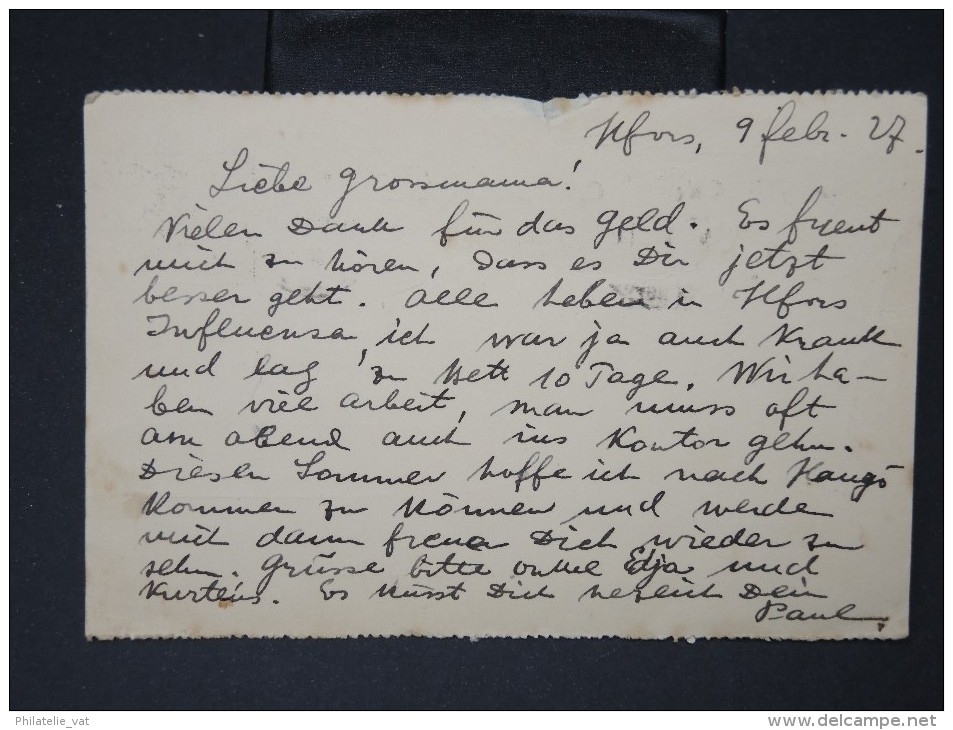 Hfors, 9 febr. 27.
Liebe Grossmama!
Vielen Dank für das Geld. Es freut
mich zu hören, dass es Dir jetzt
besser geht. Alle haben in Hfors
Influensa, ich war ja auch krank
und lag zu Bett 10 Tage. Wir ha-
ben viel arbeit, man muss oft
am abend auch ins Kontor gehn.
Diesen Sommer hoffe ich nach Hangö
kommen zu können und werde
mich dann freuen Dich wieder zu
sehn. Grüsse bitte onkel Edja und
Kurténs. Es küsst Dich herzlich Dein
Paul
Philatelie_vat
www.delcampe.net